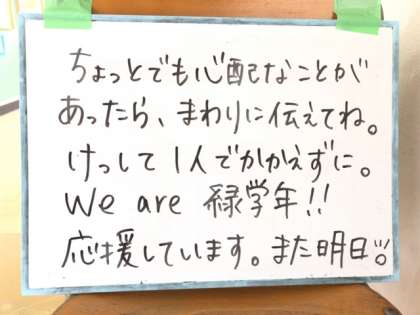 ちょっとでも心配なことが
あったら、まわりに伝えてね。
けっして1人でかかえずに。
We are 緑学年!!
応援しています。また明日!!